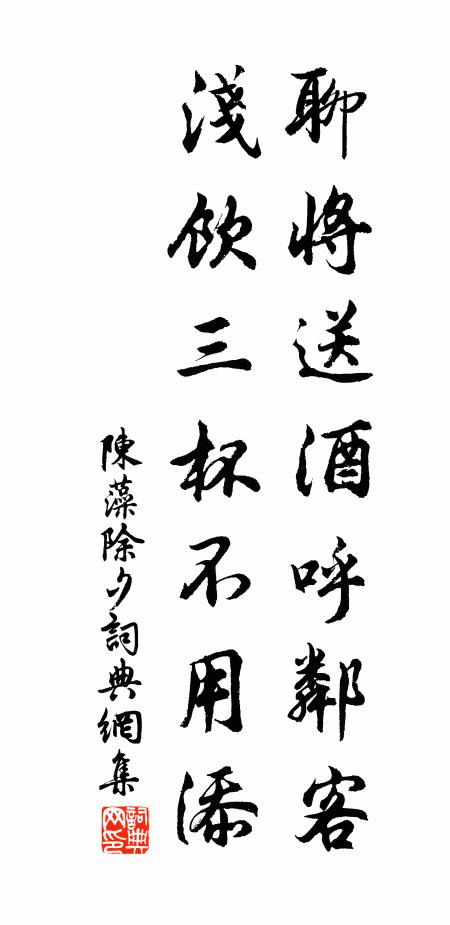 聊將送酒呼鄰客
淺飲三杯不用添
陳藻除夕詞典網集
詞典网印